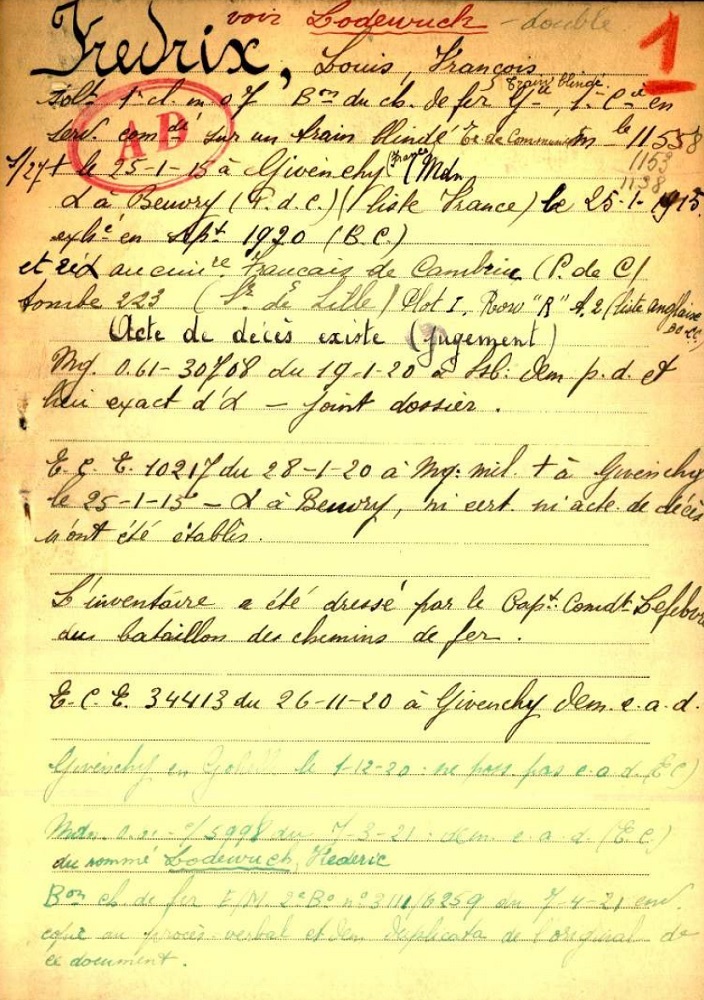 voir Lodewuck - double
1
Fredrix, Louis, François
Train blindé.
Solt 1e cl. m 07 Bon du ch. de fer Gie, 1e Cie en
serv. comdé sur un train blindé le 11558
1153
1138
AB
1/27 + le 25-1-15 à Givenchy (France) (Mdn
à Beuvry (P.d.C.) (liste France) le 25-1-1915.
exhé en Sept 1920 (B.C.)
et au cimre Français de Cambrin (P. de C)
tombe 223 (Sr de Lille) Plot I, Row "A" A, 2 (liste anglaise
Acte de décès existe (Jugement)
Mg. 0.61-30708 du 19-1-20 à dem p.d. et
lieu exact d'd - joint dossier.
E. C. E. 10217 du 28-1-20 à Mg: mil. + à Givenchy
le 25-1-15 - à Beuvry, ni cert. ni acte de décès
n'ont été établis.
L'inventaire a été dressé par le Capt: Comdt Lefebvre
du bataillon des chemins de fer.
E. C. E. 34413 du 26-11-20 à Givenchy dem. e.a.d.
Givenchy en le 1-12-20 ne poss. pas e.a.d. (E C)
Mdn. 5998 du 7-3-21 dem e.a.d. (E.C.)
du nommé Lodewuck, Frederic
Bon ch. de fer E/M. 2e Bo n° 3111/6259 du 7-4-21 env.
copie au procès-verbal et dem duplicata de l'original de
ce document.